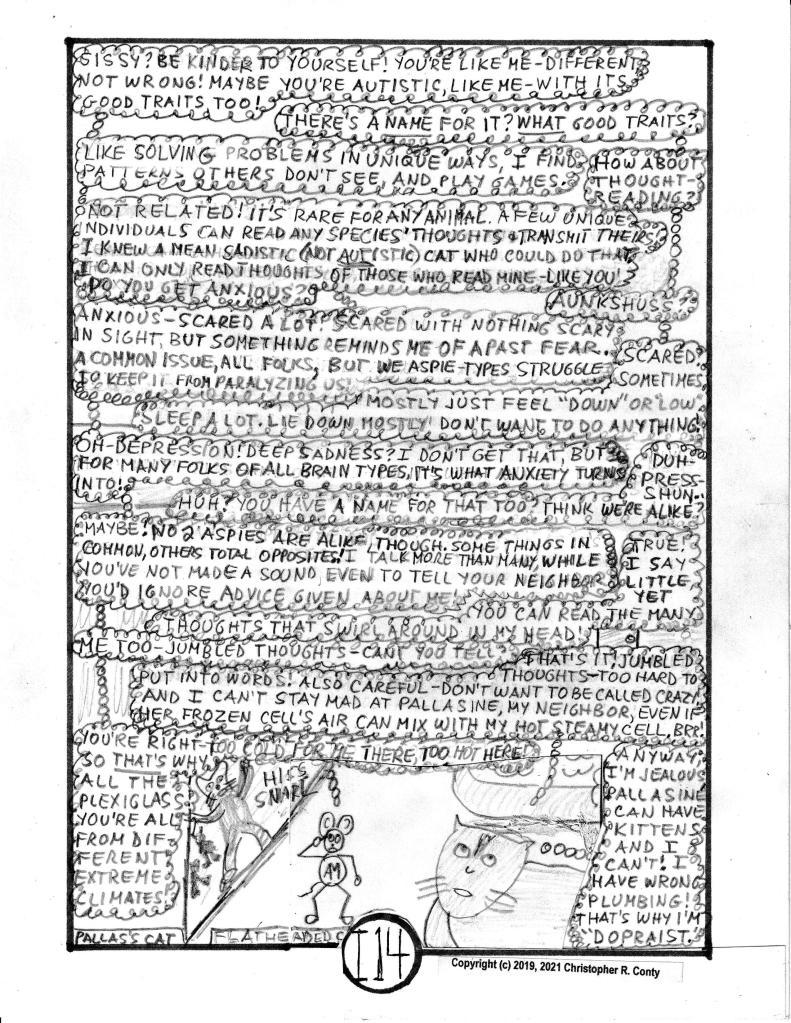 SISSY? BE KINDER TO YOURSELF! YOU'RE LIKE ME-DIFFERENT
NOT WRONG! MAYBE YOU'RE AUTISTIC, LIKE ME-WITH ITS
GOOD TRAITS TOO!
THERE'S A NAME FOR IT? WHAT GOOD TRAITS?
LIKE SOLVING PROBLEMS IN UNIQUE WAYS, I FIND
PATTERNS OTHERS DON'T SEE, AND PLAY GAMES.
HOW ABOUT
THOUGHT-
READING?
NOT RELATED! IT'S RARE FOR ANY ANIMAL. A FEW UNIQUE
INDIVIDUALS CAN READ ANY SPECIES' THOUGHTS & TRANSMIT THEIRS.
I KNEW A MEAN SADISTIC (NOT AUTISTIC) CAT WHO COULD DO THAT.
I CAN ONLY READ THOUGHTS OF THOSE WHO READ MINE-LIKE YOU!
DO YOU GET ANXIOUS?
AUNKSHUSS?
ANXIOUS-SCARED A LOT! SCARED WITH NOTHING SCARY
IN SIGHT, BUT SOMETHING REMINDS ME OF A PAST FEAR.
A COMMON ISSUE, ALL FOLKS, BUT WE ASPIE-TYPES STRUGGLE
TO KEEP IT FROM PARALYZING US!
SCARED?
SOMETIMES
MOSTLY JUST FEEL "DOWN" OR "LOW"
SLEEP A LOT. LIE DOWN MOSTLY! DON'T WANT TO DO ANYTHING!
OH-DEPRESSION! DEEP SADNESS? I DON'T GET THAT, BUT
FOR MANY FOLKS OF ALL BRAIN TYPES, IT'S WHAT ANXIETY TURNS
INTO!
DUH-
PRESS-
SHUN..
HUH? YOU HAVE A NAME FOR THAT TOO? THINK WE'RE ALIKE?
MAYBE! NO 2 ASPIES ARE ALIKE, THOUGH. SOME THINGS IN
COMMON, OTHERS TOTAL OPPOSITES! I TALK MORE THAN MANY, WHILE
YOU'VE NOT MADE A SOUND, EVEN TO TELL YOUR NEIGHBOR
YOU'D IGNORE ADVICE GIVEN ABOUT ME!
TRUE!
I SAY
LITTLE,
YET
YOU CAN READ THE MANY
THOUGHTS THAT SWIRL AROUND IN MY HEAD!
ME TOO-JUMBLED THOUGHTS-CAN'T YOU TELL?
THAT'S IT! JUMBLED
THOUGHTS-TOO HARD TO
PUT INTO WORDS! ALSO CAREFUL-DON'T WANT TO BE CALLED CRAZY!
AND I CAN'T STAY MAD AT PALLASINE, MY NEIGHBOR, EVEN IF
HER FROZEN CELL'S AIR CAN MIX WITH MY HOT STEAMY CELL. BRR!
YOU'RE RIGHT-TOO COLD FOR ME THERE, TOO HOT HERE!
SO THAT'S WHY
ALL THE
PLEXIGLASS
YOU'RE ALL
FROM DIF-
FERENT
EXTREME
CLIMATES!
HISS
SNARL
AM
ANYWAY,
I'M JEALOUS
PALLASINE
CAN HAVE
KITTENS
AND I
CAN'T! I
HAVE WRONG
PLUMBING!
THAT'S WHY I'M
"DOPRAIST."
PALLAS'S CAT
FLATHEADED C
I14
Copyright (c) 2019, 2021 Christopher R. Conty